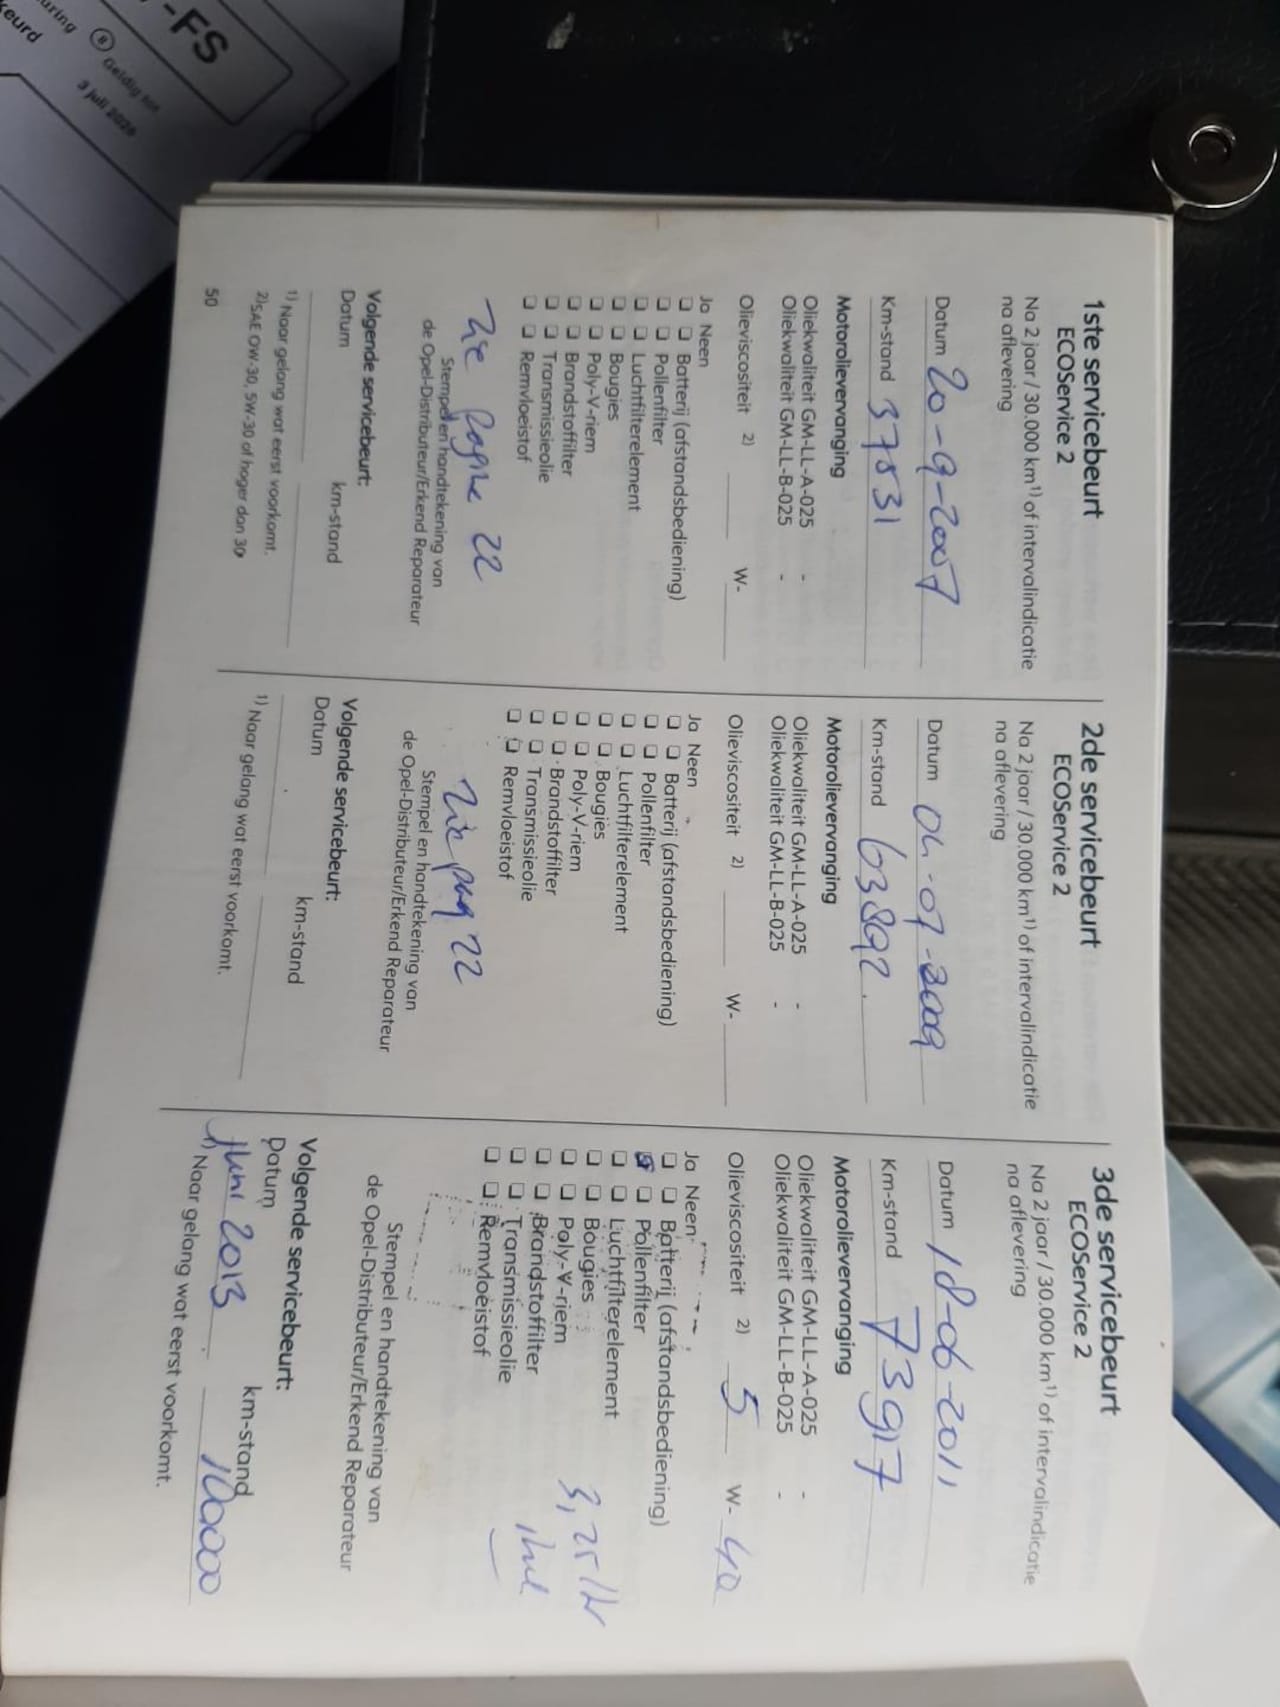 -FS
uring
Geldig tot
keurd
3 juli 2026
1ste servicebeurt
ECOService 2
Na 2 jaar / 30.000 km¹⁾ of intervalindicatie
na aflevering
Datum 20-9-2007
Km-stand 37531
Motorolievervanging
Oliekwaliteit GM-LL-A-025 -
Oliekwaliteit GM-LL-B-025 -
Olieviscositeit ²⁾ W-
Ja Neen
❏ ❏ Batterij (afstandsbediening)
❏ ❏ Pollenfilter
❏ ❏ Luchtfilterelement
❏ ❏ Bougies
❏ ❏ Poly-V-riem
❏ ❏ Brandstoffilter
❏ ❏ Transmissieolie
❏ ❏ Remvloeistof
Zie pagina 22
Stempel en handtekening van
de Opel-Distributeur/Erkend Reparateur
Volgende servicebeurt:
Datum km-stand
¹⁾ Naar gelang wat eerst voorkomt.
²⁾SAE OW-30, 5W-30 of hoger dan 30
50
2de servicebeurt
ECOService 2
Na 2 jaar / 30.000 km¹⁾ of intervalindicatie
na aflevering
Datum 04-07-2009
Km-stand 63892.
Motorolievervanging
Oliekwaliteit GM-LL-A-025 -
Oliekwaliteit GM-LL-B-025 -
Olieviscositeit ²⁾ W-
Ja Neen
❏ ❏ Batterij (afstandsbediening)
❏ ❏ Pollenfilter
❏ ❏ Luchtfilterelement
❏ ❏ Bougies
❏ ❏ Poly-V-riem
❏ ❏ Brandstoffilter
❏ ❏ Transmissieolie
❏ ❏ Remvloeistof
Zie pag 22
Stempel en handtekening van
de Opel-Distributeur/Erkend Reparateur
Volgende servicebeurt:
Datum km-stand
¹⁾ Naar gelang wat eerst voorkomt.
3de servicebeurt
ECOService 2
Na 2 jaar / 30.000 km¹⁾ of intervalindicatie
na aflevering
Datum 18-06-2011
Km-stand 73917
Motorolievervanging
Oliekwaliteit GM-LL-A-025 -
Oliekwaliteit GM-LL-B-025 -
Olieviscositeit ²⁾ 5 W- 40
Ja Neen
❏ ❏ Batterij (afstandsbediening)
❏ ❏ Pollenfilter
❏ ❏ Luchtfilterelement
❏ ❏ Bougies
❏ ❏ Poly-V-riem 3,25 ltr
❏ ❏ Brandstoffilter
❏ ❏ Transmissieolie
❏ ❏ Remvloeistof
Stempel en handtekening van
de Opel-Distributeur/Erkend Reparateur
Volgende servicebeurt:
Datum km-stand
juni 2013 100000
¹⁾ Naar gelang wat eerst voorkomt.